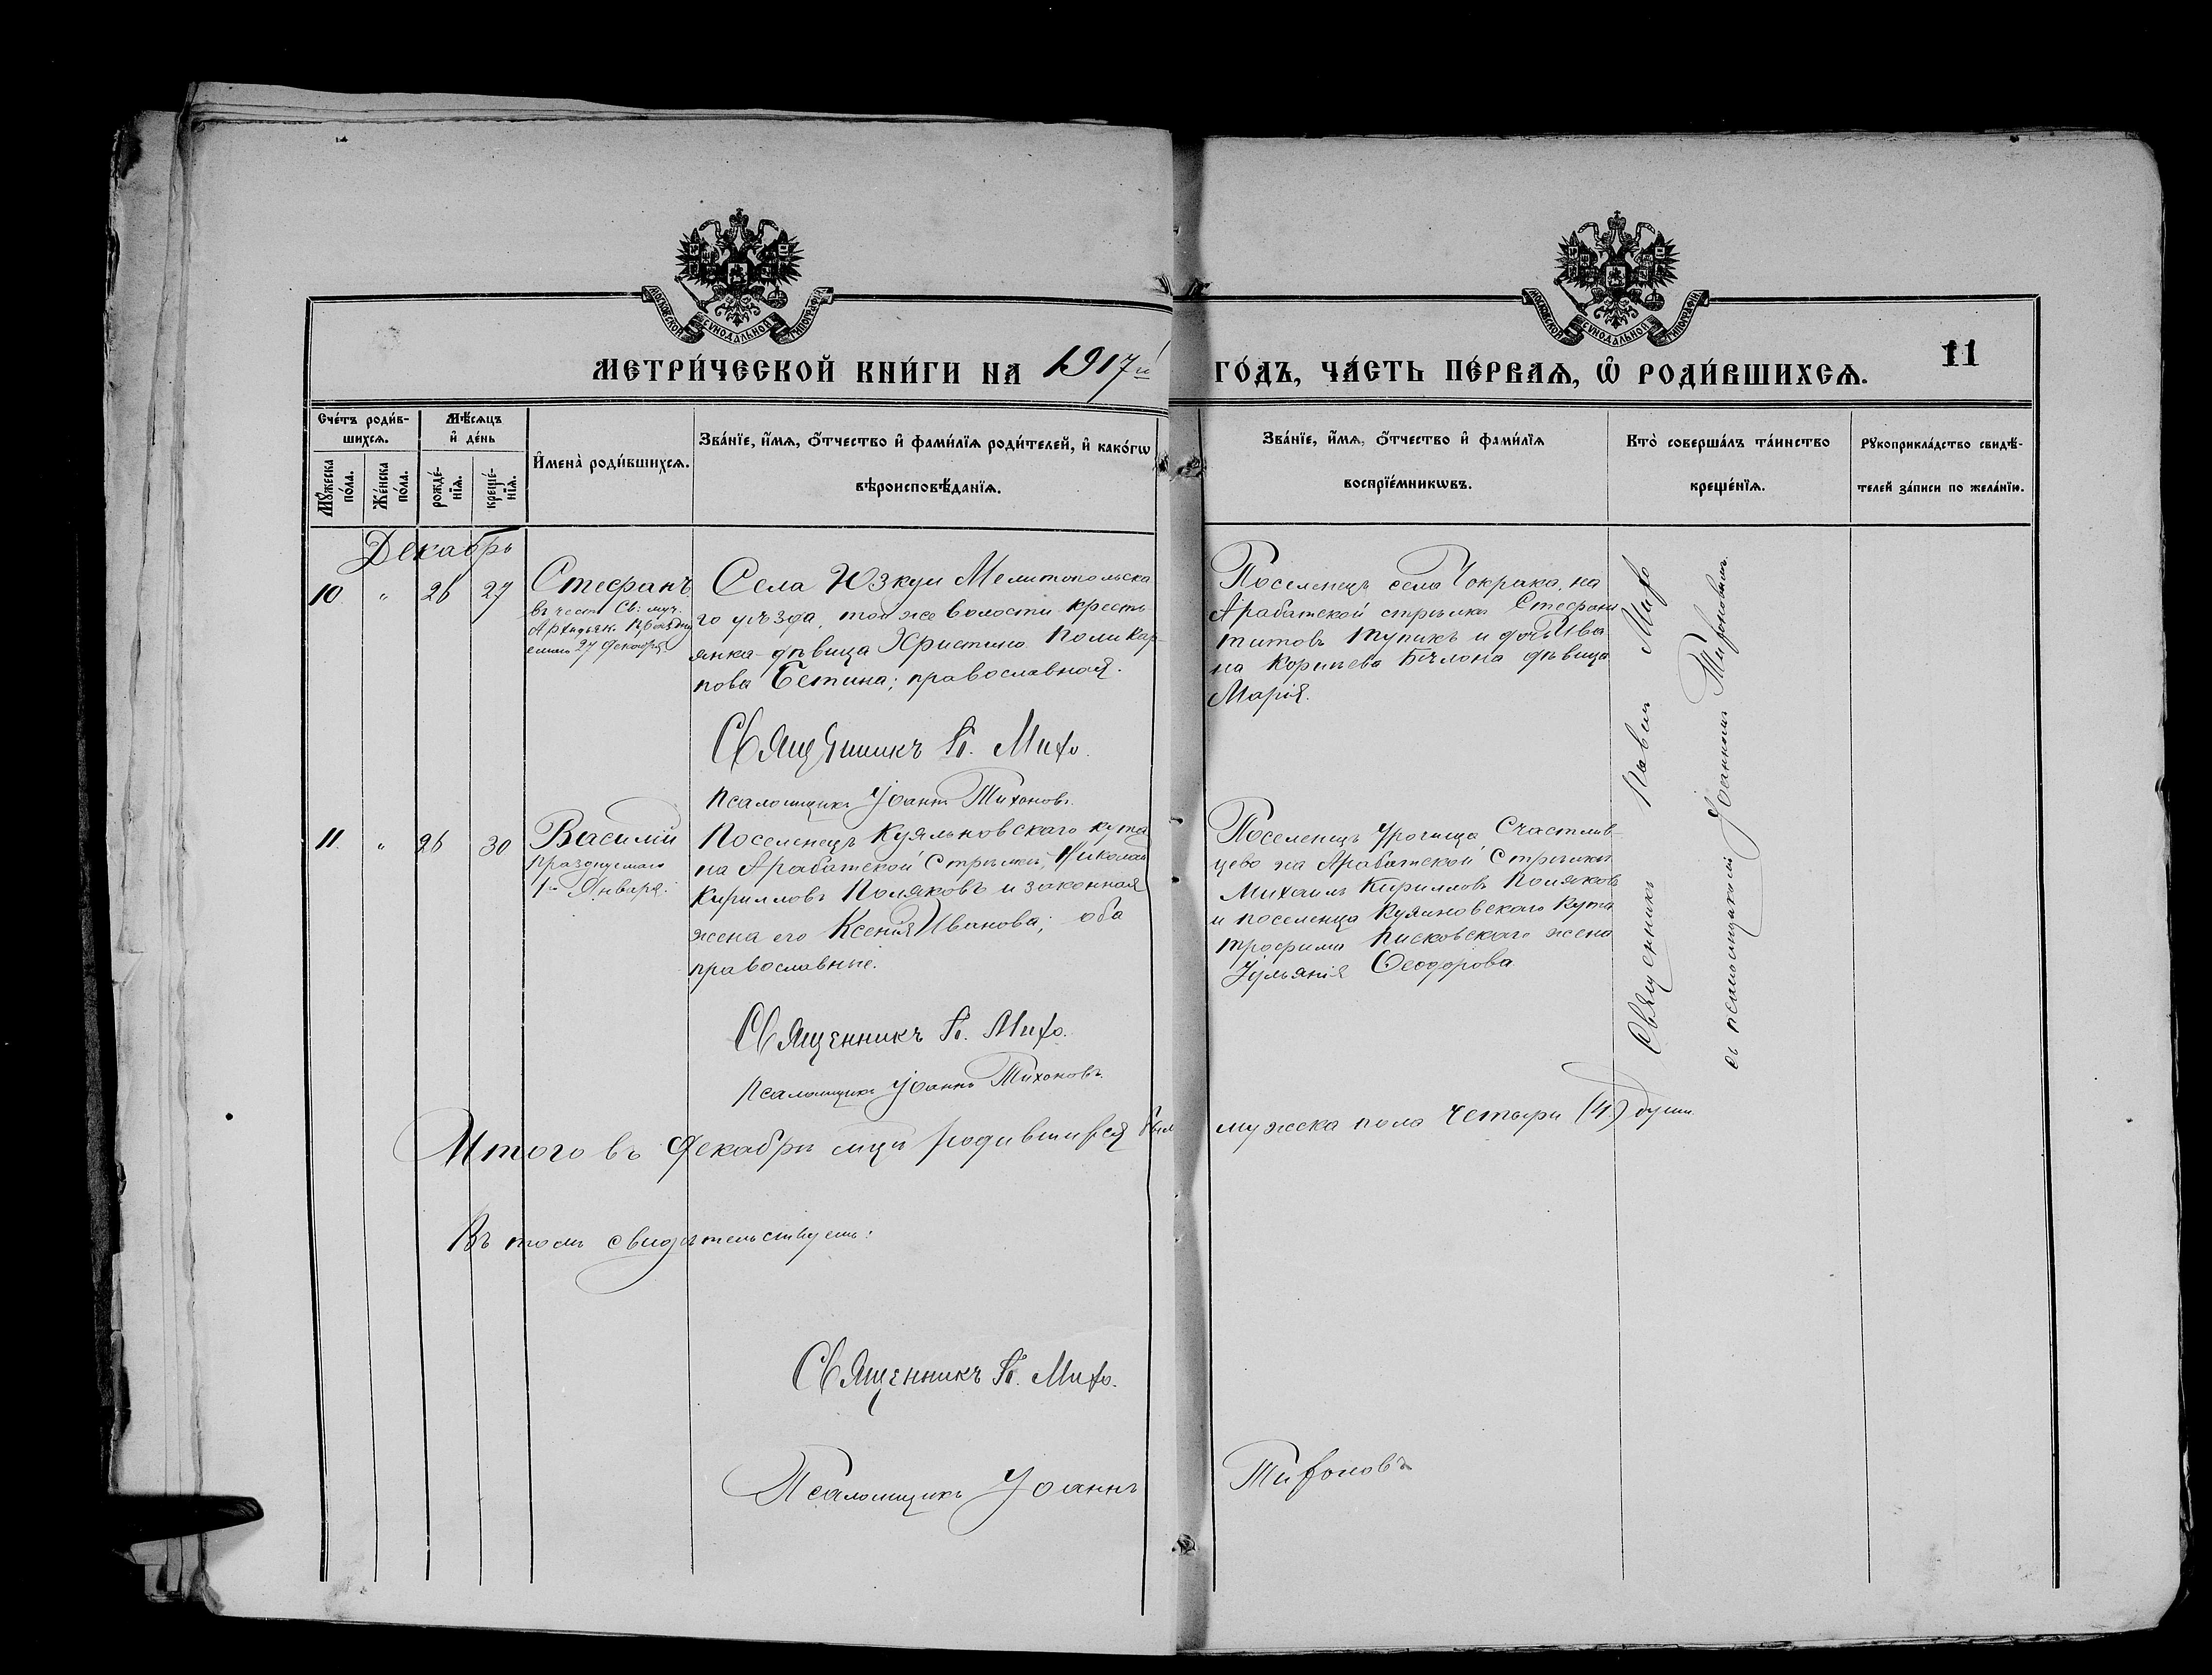 МОСКОВСКОЙ СѴНОДАЛЬНОЙ ТИПОГРАФІИ
МОСКОВСКОЙ СѴНОДАЛЬНОЙ ТИПОГРАФІИ
МЕТРИ́ЧЕСКОЙ КНИ́ГИ НА 1917й
ГО́ДЪ, ЧА́СТЬ ПЕ́РВАѦ, Ѡ҆ РОДИ́ВШИХСѦ.
11
Сче́тъ роди́в-
шихсѧ.
Мꙋ́жеска по́ла.
Же́нска по́ла.
Мѣ́сѧцъ
и҆ де́нь
рожде́-
нїѧ.
креще́-
нїѧ.
И҆мена̀ роди́вшихсѧ.
Зва́нїе, и҆́мѧ, ѻ҆́тчество и҆ фами́лїѧ роди́телей, и҆ како́гѡ
вѣроисповѣ́данїѧ.
Зва́нїе, и҆́мѧ, ѻ҆́тчество и҆ фами́лїѧ
воспрїе́мникѡвъ.
Кто̀ соверша́лъ та́инство
креще́нїѧ.
Рꙋкоприкла́дство свидѣ́-
телей за́писи по жела́нїю.
Декабрь
10. " 26 27
Стефанъ
въ честь Св: муч.
Архидьяк.
27 декабря.
Села Юзкуи Мелитопольска
го уѣзда, той же волости кресть
янка-дѣвица Христина Поликар-
пова Бетина; православная.
Священникъ П. Михо.
Псаломщикъ Іоаннъ Тихоновъ.
Поселенецъ села Чокрака, на
Арабатской стрѣлкѣ Стефанъ
Титовъ Тупикъ и дочь Ива
на Корнѣева Бѣлона дѣвица
Марія.
11. " 26 30
Василій
празднуемаго
1го Января.
Поселенецъ Куяльновскаго кута
на Арабатской Стрѣлкѣ, Николай
Кирилловъ Поляковъ и законная
жена его Ксенія Иванова; оба
православные.
Священникъ П. Михо.
Псаломщикъ Іоаннъ Тихоновъ.
Поселенецъ Урочища Счастлив-
цево на Арабатской Стрѣлкѣ
Михаилъ Кирилловъ Поляковъ
и поселенца Куяльновскаго Кута
Трофима Писковскаго жена
Іульянія Ѳеодорова
Священникъ Павелъ Михо
съ псаломщикомъ Іоанномъ Тихоновымъ.
Итого въ Декабрѣ мцѣ родившихся было мужска пола четыри (4) души
Въ томъ свидѣтельствуемъ:
Священникъ П. Михо.
Псаломщикъ Іоаннъ Тихоновъ